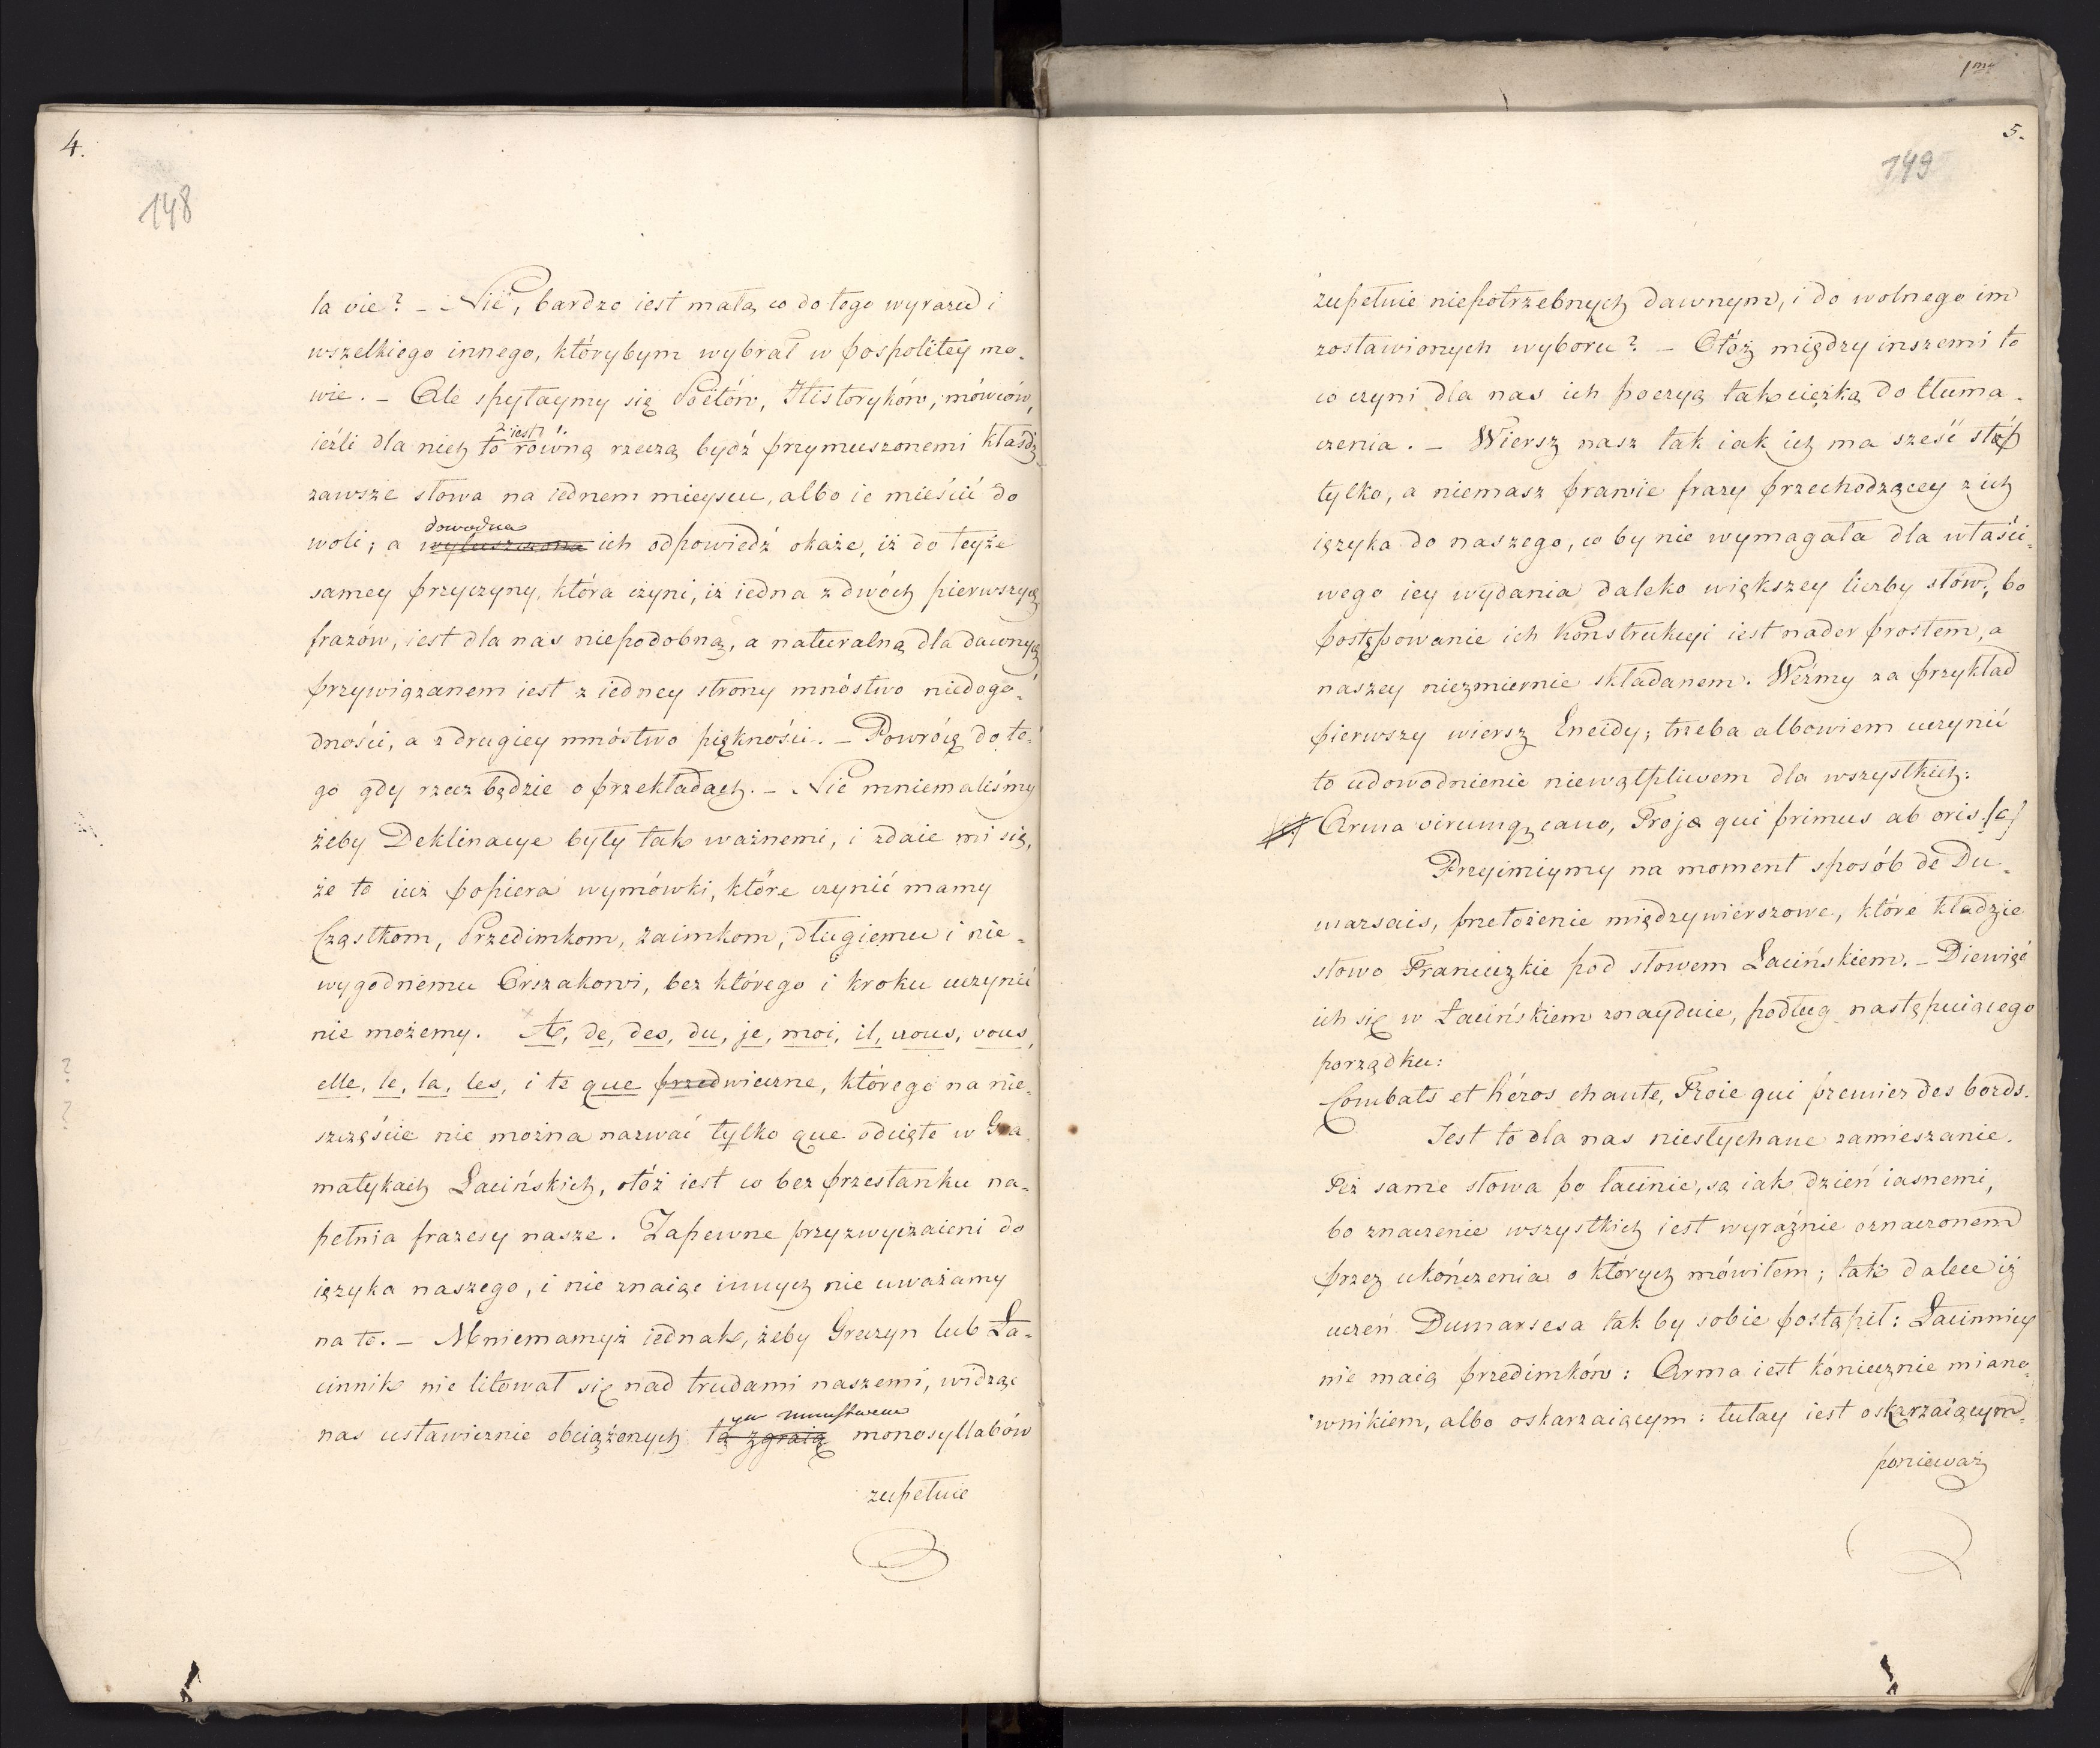 4.
148
la vie? – Nie, bardzo iest mała, co do tego wyrazu i
wszelkiego innego, którybym wybrał w pospolitey mo-
wie. – Ale spytaymy się Poëtów, Historyków, mówców,
ieźli dla nich to iest równą rzeczą bydź przymuszonemi kłaśdź
zawsze słowa na iednem mieyscu, albo ie mieścić do
woli; a dowodna ich odpowiedź okaże, iż do teyże
samey przyczyny, która czyni, iż iedna z dwóch pierwszych
frazów, iest dla nas niepodobną, a naturalną dla dawnych
przywiązanem iest z iedney strony mnóstwo niedogo-
dności, a z drugiey mnóstwo piękności. – Powrócę do te-
go gdy rzecz będzie o przekładach. – Nie mniemaliśmy
żeby Deklinacye były tak ważnemi, i zdaie mi się,
że to iuż popiera wymówki, które czynić mamy
Cząstkom, Przedimkom, zaimkom, długiemu i nie-
wygodnemu Orszakowi, bez którego i kroku uczynić
nie możemy. A, de, des, du, je, moi, il, vous, vous,
elle, le, la, les, i te que przedwieczne, którego na nie-
szczęście nie można nazwać tylko que odcięte w Gra-
matykach Łacińskich, otóż iest co bez przestanku na-
pełnia frazesy nasze. Zapewne przyzwyczaieni do
ięzyka naszego, i nie znaiąc innych nie uważamy
na to. – Mniemamyż iednak, żeby Greczyn lub Ła-
cinnik nie litował się nad trudami naszemi, widząc
nas ustawicznie obciążonych tą zgraią monosyllabów
zupełnie
1mo
5.
149
zupełnie niepotrzebnych dawnym, i do wolnego im
zostawionych wyboru? – Otóż między inszemi to
co czyni dla nas ich poezyą tak ciężką do tłuma-
czenia. – Wiersz nasz tak iak ich ma sześć stóp
tylko, a niemasz prawie frazy przechodzącey z ich
ięzyka do naszego, co by nie wymagała dla właści-
wego iey wydania daleko większey liczby słów; bo
postępowanie ich Konstrukcyi iest nader prostem, a
naszey niezmiernie składanem. Weźmy za przykład
pierwszy wiersz Eneidy; trzeba albowiem uczynić
to udowodnienie niewątpliwem dla wszystkich:
Arma virumq; cano, Trojæ qui primus ab oris.
Przyimiymy na moment sposób de Du-
marsais, przełożenie międzywierszowe, które kładzie
słowo Francuzkie pod słowem Łacińskiem. – Diewięć
ich się w Łacińskiem znayduie, podług następuiącego
porządku:
Combats et héros chante, Troie qui premier des bords.
Iest to dla nas niesłychane zamieszanie.
Też same słowa po łacinie, są iak dzień iasnemi,
bo znaczenie wszystkich iest wyraźnie oznaczonem
przez ukończenia o których mówiłem; tak dalece iż
uczeń Dumarsesa tak by sobie postąpił: Łacinnicy
nie maią przedimków: Arma iest koniecznie miano-
wnikiem, albo oskarzaiącym: tutay iest oskarzaiącym-
ponieważ